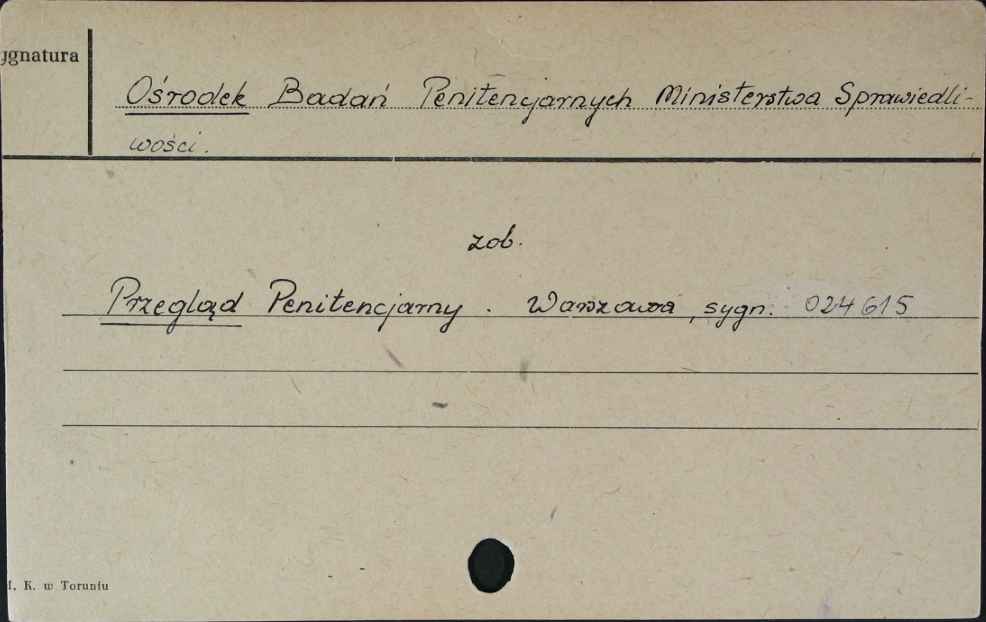 ygnatura
Ośrodek Badań Penitencjarnych Ministerstwa Sprawiedli-
wości.
zob.
Przegląd Penitencjarny. Warszawa, sygn. 024615
K. w Toruniu